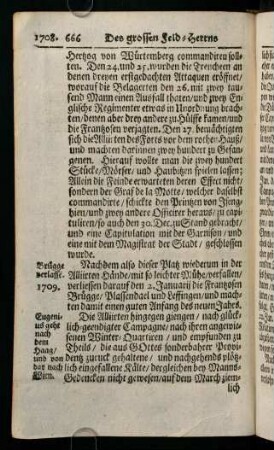 1708. 666 Des grossen Feld-Herrns
Hertzog von Würtemberg commandiren soll-
ten. Den 24. und 25. wurden die Trencheen an
denen dreyen erstgedachten Attaquen eröffnet/
worauf die Belagerten den 26. mit zwey tau-
send Mann einen Ausfall thaten/ und zwey En-
glische Regimenter etwas in Unordnung brach-
ten/ denen aber drey andere zu Hülffe kamen/ und
die Frantzosen verjagten. Den 27. bemächtigten
sich die Alliirten des Forts vor dem rothe-Hauß/
und machten darinnen zwey hundert zu Gefan-
genen. Hierauf wollte man die zwey hundert
Stücke/ Mörser/ und Haubitzen spielen lassen;
Allein die Feinde erwarteten deren Effect nicht/
sondern der Graf de la Motte / welcher daselbst
commandirte/ schickte den Printzen von Jseng-
hien/ und zwey andere Officirer heraus/ zu capi-
tuliren/ so auch den 30. Dec. zu Stand gebracht/ und
eine Capitulation mit der Garnison/ und
eine mit dem Magistrat der Stadt/ geschlossen
wurde.
Brügge Nachdem also dieser Platz wiederum in der
verlasse. Alliirten Hände/ mit so leichter Mühe/ verfallen/
1709. verliessen darauf den 2. Januarij die Frantzosen
Brügge/ Plassendael und Leffingen/ und mach-
ten damit einen guten Anfang des neuen Jahrs.
Eugeni- Die Alliirten hingegen giengen/ nach glück-
us geht lich-geendigter Campagne/ nach ihren angewie-
nach senen Winter-Quartiren / und empfunden zu
dem Theils / die aus GOttes sonderbahrer Provi-
Haag/ dentz zurück gehaltene/ und nachgehends plötz-
und von
dar nach lich eingefallene Kälte/ dergleichen bey Manns-
Wien. Gedencken nicht gewesen/ auf dem March ziem-
lich